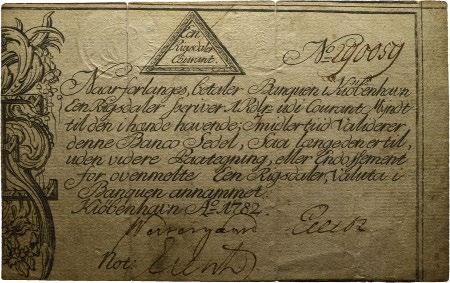 Een
Rigsdaler
Courant.
No 290059
Naar forlanges, betaler Banquen i Kiøbenhavn
Een Rigsdaler, skriver 1 Rdlr. udi Courant Myndt
til den i hænde havende; Imidlertiid Validerer
denne Banco Sedel, Saa længe den er til,
uden videre Paategning, eller Endossement
for ovenmelte Een Rigsdaler, Valuta i
Banquen annammet.
Kiöbenhavn Ao. 1782.
Not: